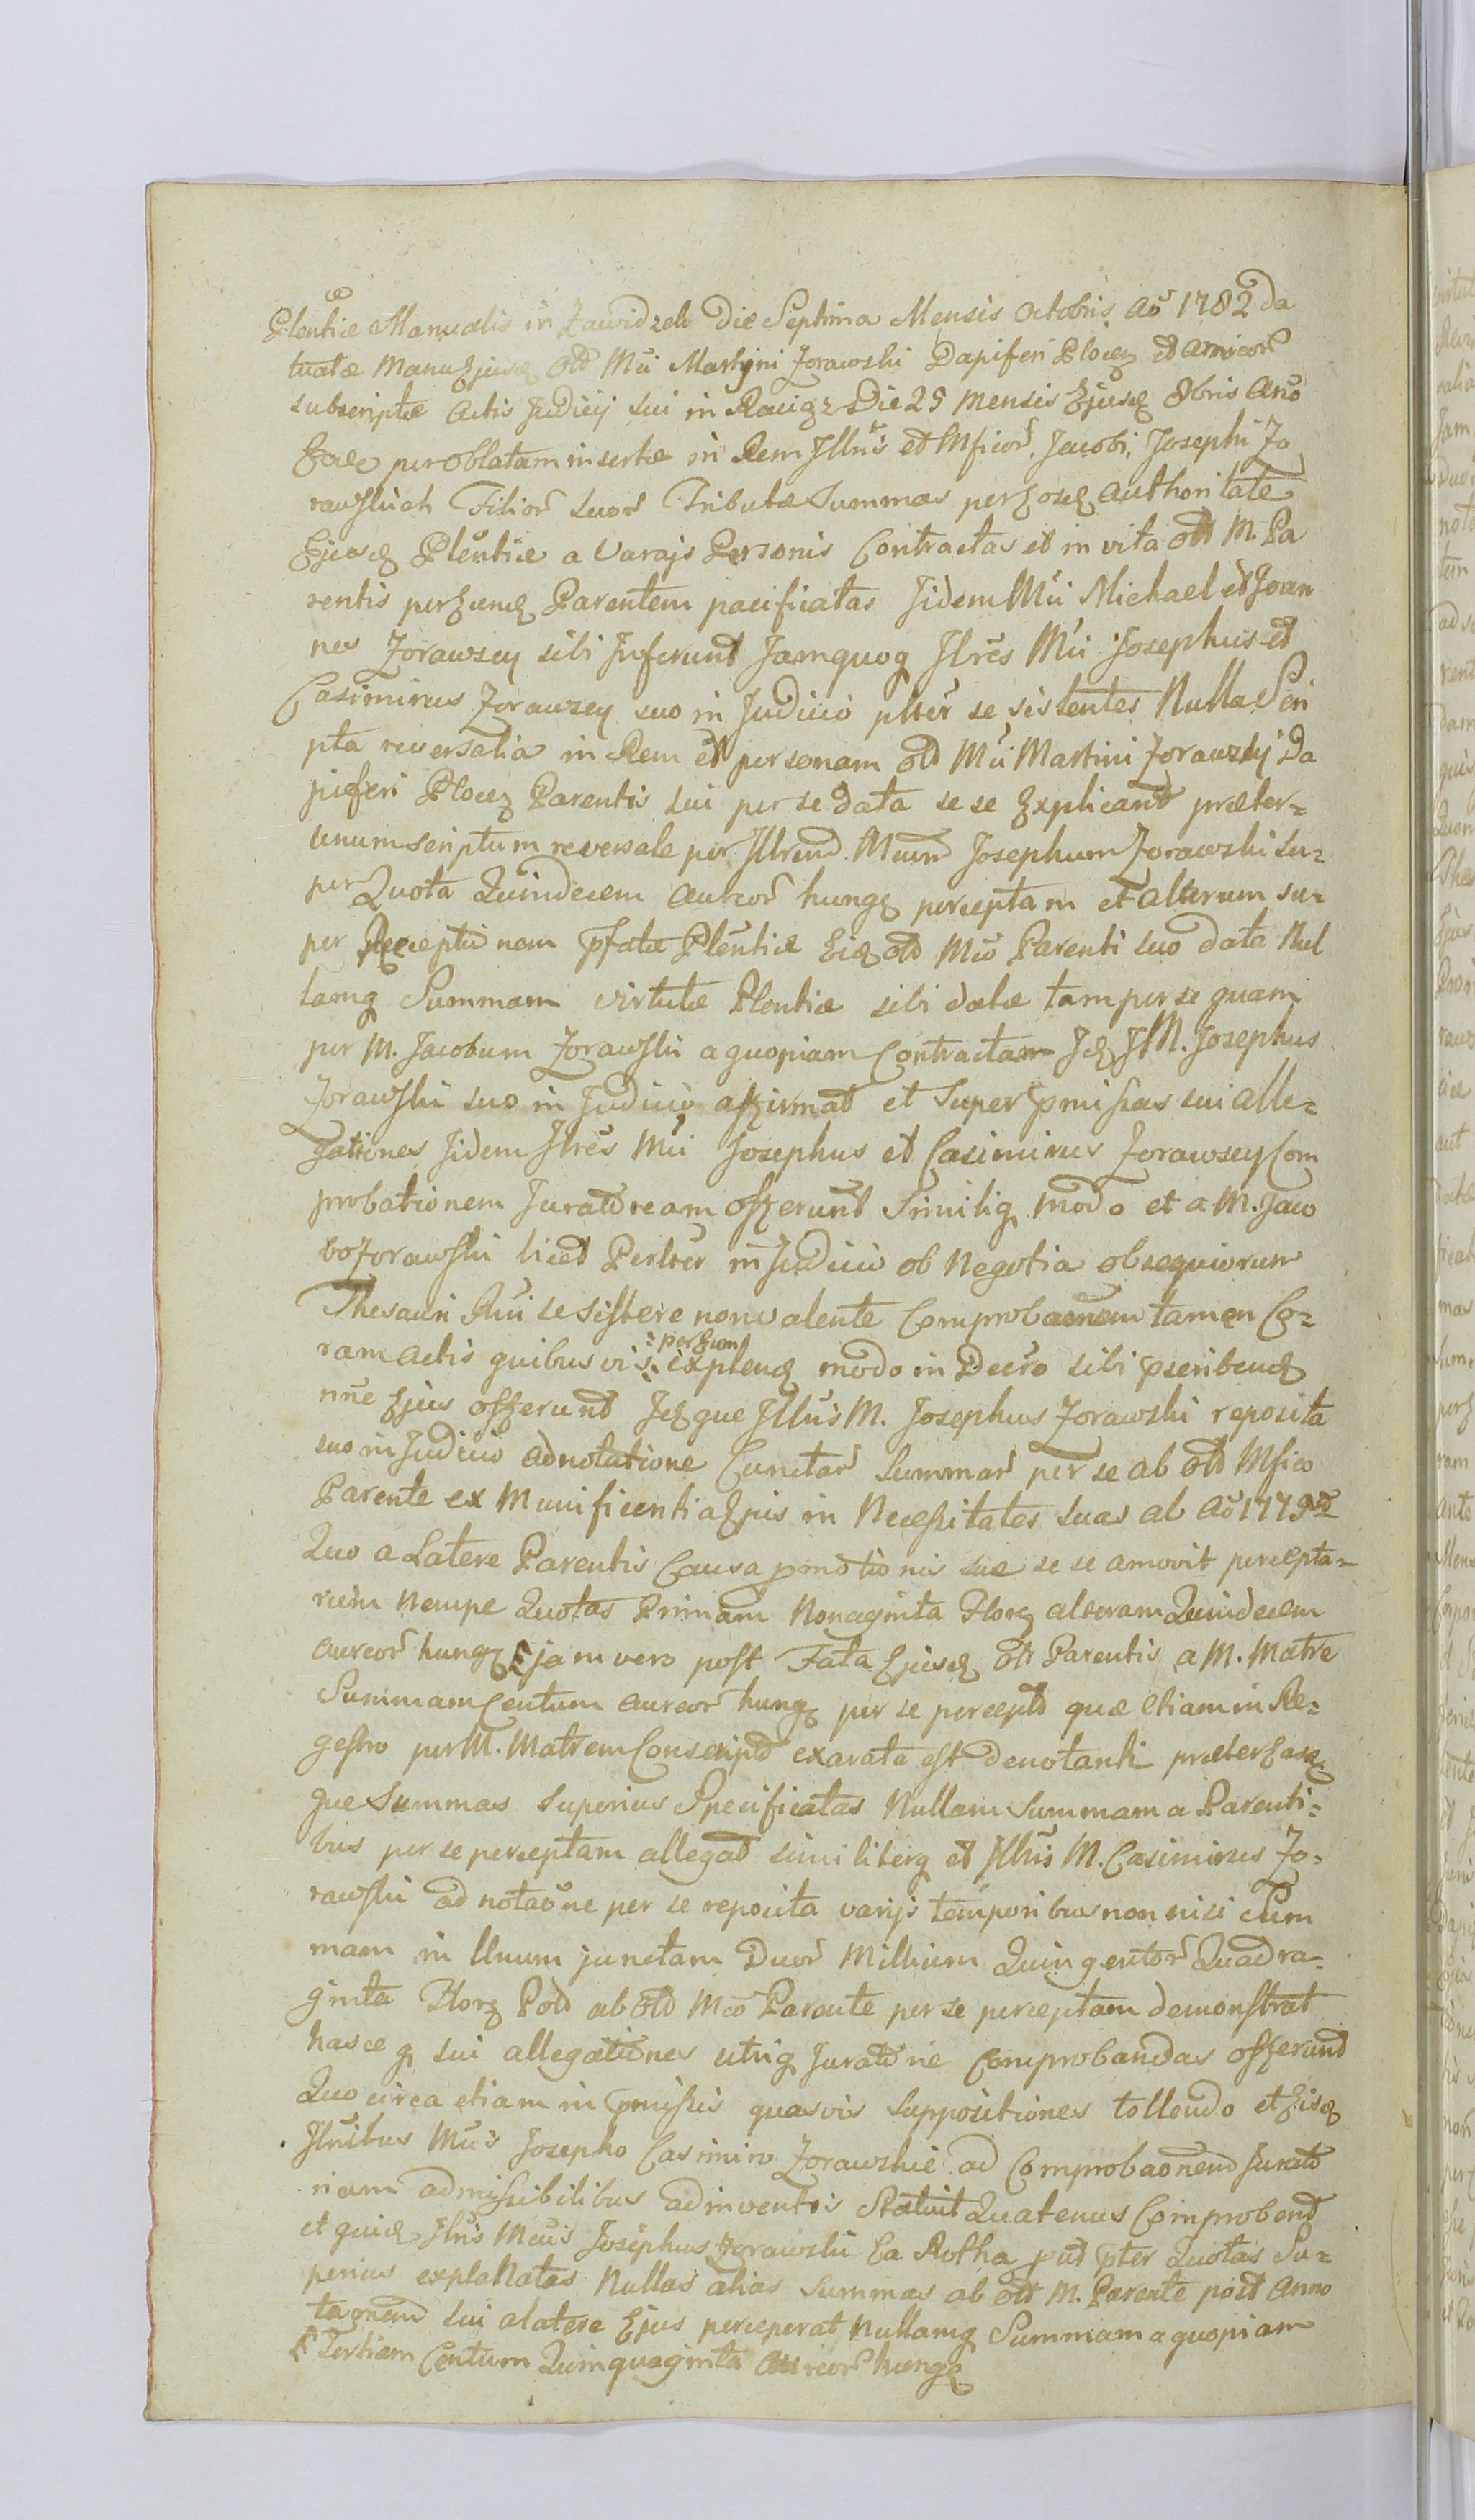 Plentiæ Manualis in Zawidzek Die Septima Mensis Octobris Aō 1782 da
tuatæ Manu Ejusq̨ Old Mci Martini Zorawski Dapiferi Plocen̨ et Amicor̄
subscriptæ Actis Judicij sui in Raciąz Die 25 Mensis Ejusq̨ 8bris Anō
Eoq̨ per Oblatam insertæ in Rem Jllrīs et Mficor̄. Jacobi, Josephi Zo
rawskich Filior̄ Suor̄ Tributæ Summas per Eosq̨ Authoritate
Ejusq̨ Plentiæ a Varijs Personis Contractas et in vita Old M. Pa
rentis per Eumq̨ Parentem pacificatas Jidem Mci Michael et Joan
nes Zorawscy sibi Inferunt Jamquoq̨ Jllrēs Mci Josephus et
Casimirus Zorawscy suo in Judicio plter se sistentes Nulla Scri
pta reversalia in Rem et personam Old Mci Martini Zorawskij Da
piferi Plocen̨ Parentis sui per se data se se Explicant præter=
unum scriptum reversale per Jllrem̄ Mcum̄ Josephum Zorawski su=
per Quota Quindecem Aureor̄ hung̨ perceptam et alterum su=
per Receptionem pfatæ Plēntiæ Eiq̨ Old Mco Parenti suo data Nul
lamq̨ Summam virtute Plentiæ sibi datæ tam per se quam
per M. Jacobum Zorawski a quopiam Contractam Jdq̨ J M. Josephus
Zorawski suo in Judicio affirmat et Super pmissas sui alle=
gationes Jidem Jllrēs Mci Josephus et Casimirus Zorawscy Com
probationem Juratoream offerunt Similiq̨ modo et a M. Jaco
bo Zorawski licet Perlter in Judicio ob Negotia obsequiorum
Thesauri Rni se sistere non valente Comprobaōnem tamen Co=
ram Actis quibusvis :per Eum: explenq̨ modo in Decro sibi pscribenq̨
nne Ejus offerunt Jdq̨que Jllrīs M. Josephus Zorawski reposita
suo in Judicio adnotatione Cunctar̄ Summar̄ per se ab Old Mfico
Parente ex Munificentia Ejus in Necessitates suas ab Aō 1779no
Quo a Latere Parentis Causa pmotionis suæ se se amovit percepta=
rum Nempe Quotas Primam Nonaginta Flor̨ alteram Quindecem
Aureor̄ hung̨ ꝉ jam vero post Fata Ejusq̨ Old Parentis a M. Matre
Summam Centum Aureor̄ hung̨ per se percept̄ quæ etiam in Re=
gestro per M. Matrem Conscript̄ exarata est denotanti præter hasq̨
que Summas Superius Specificatas Nullam Summam a Parenti=
bus per se perceptam allegat similiterq̨ et Jllrīs M. Casimirus Zo=
rawski adnotaōne per se reposita varijs temporibus non nisi Sum
mam in Unum junctam Duor̄ Millium Quingentor̄ Quadra=
ginta Flor̨ Pold ab Old Mco Parente per se perceptam demonstrat
hasceq̨ sui allegationes utriq̨ Juratorie Comprobandas offerunt
Quo circa etiam in pmissis quasvis Suppositiones tollendo et Eisq̨
Jllribus Mcis Josepho Casimiro Zorawskie ad Comprobaōnem Jurato
riam admissibilibus adinventis Statuit Quatenus Comprobent
et quiq̨ Jllrīs Mcus Josephus Zorawski Ea Rotha put pter Quotas Su=
perius explanatas Nullas alias Summas ab Old M. Parente post Amo
taōnem sui a latere Ejus perceperat Nullamq̨ Summam a quopiam
ꝉ Tertiam Centum Quinquaginta Aureor̄ hung̨